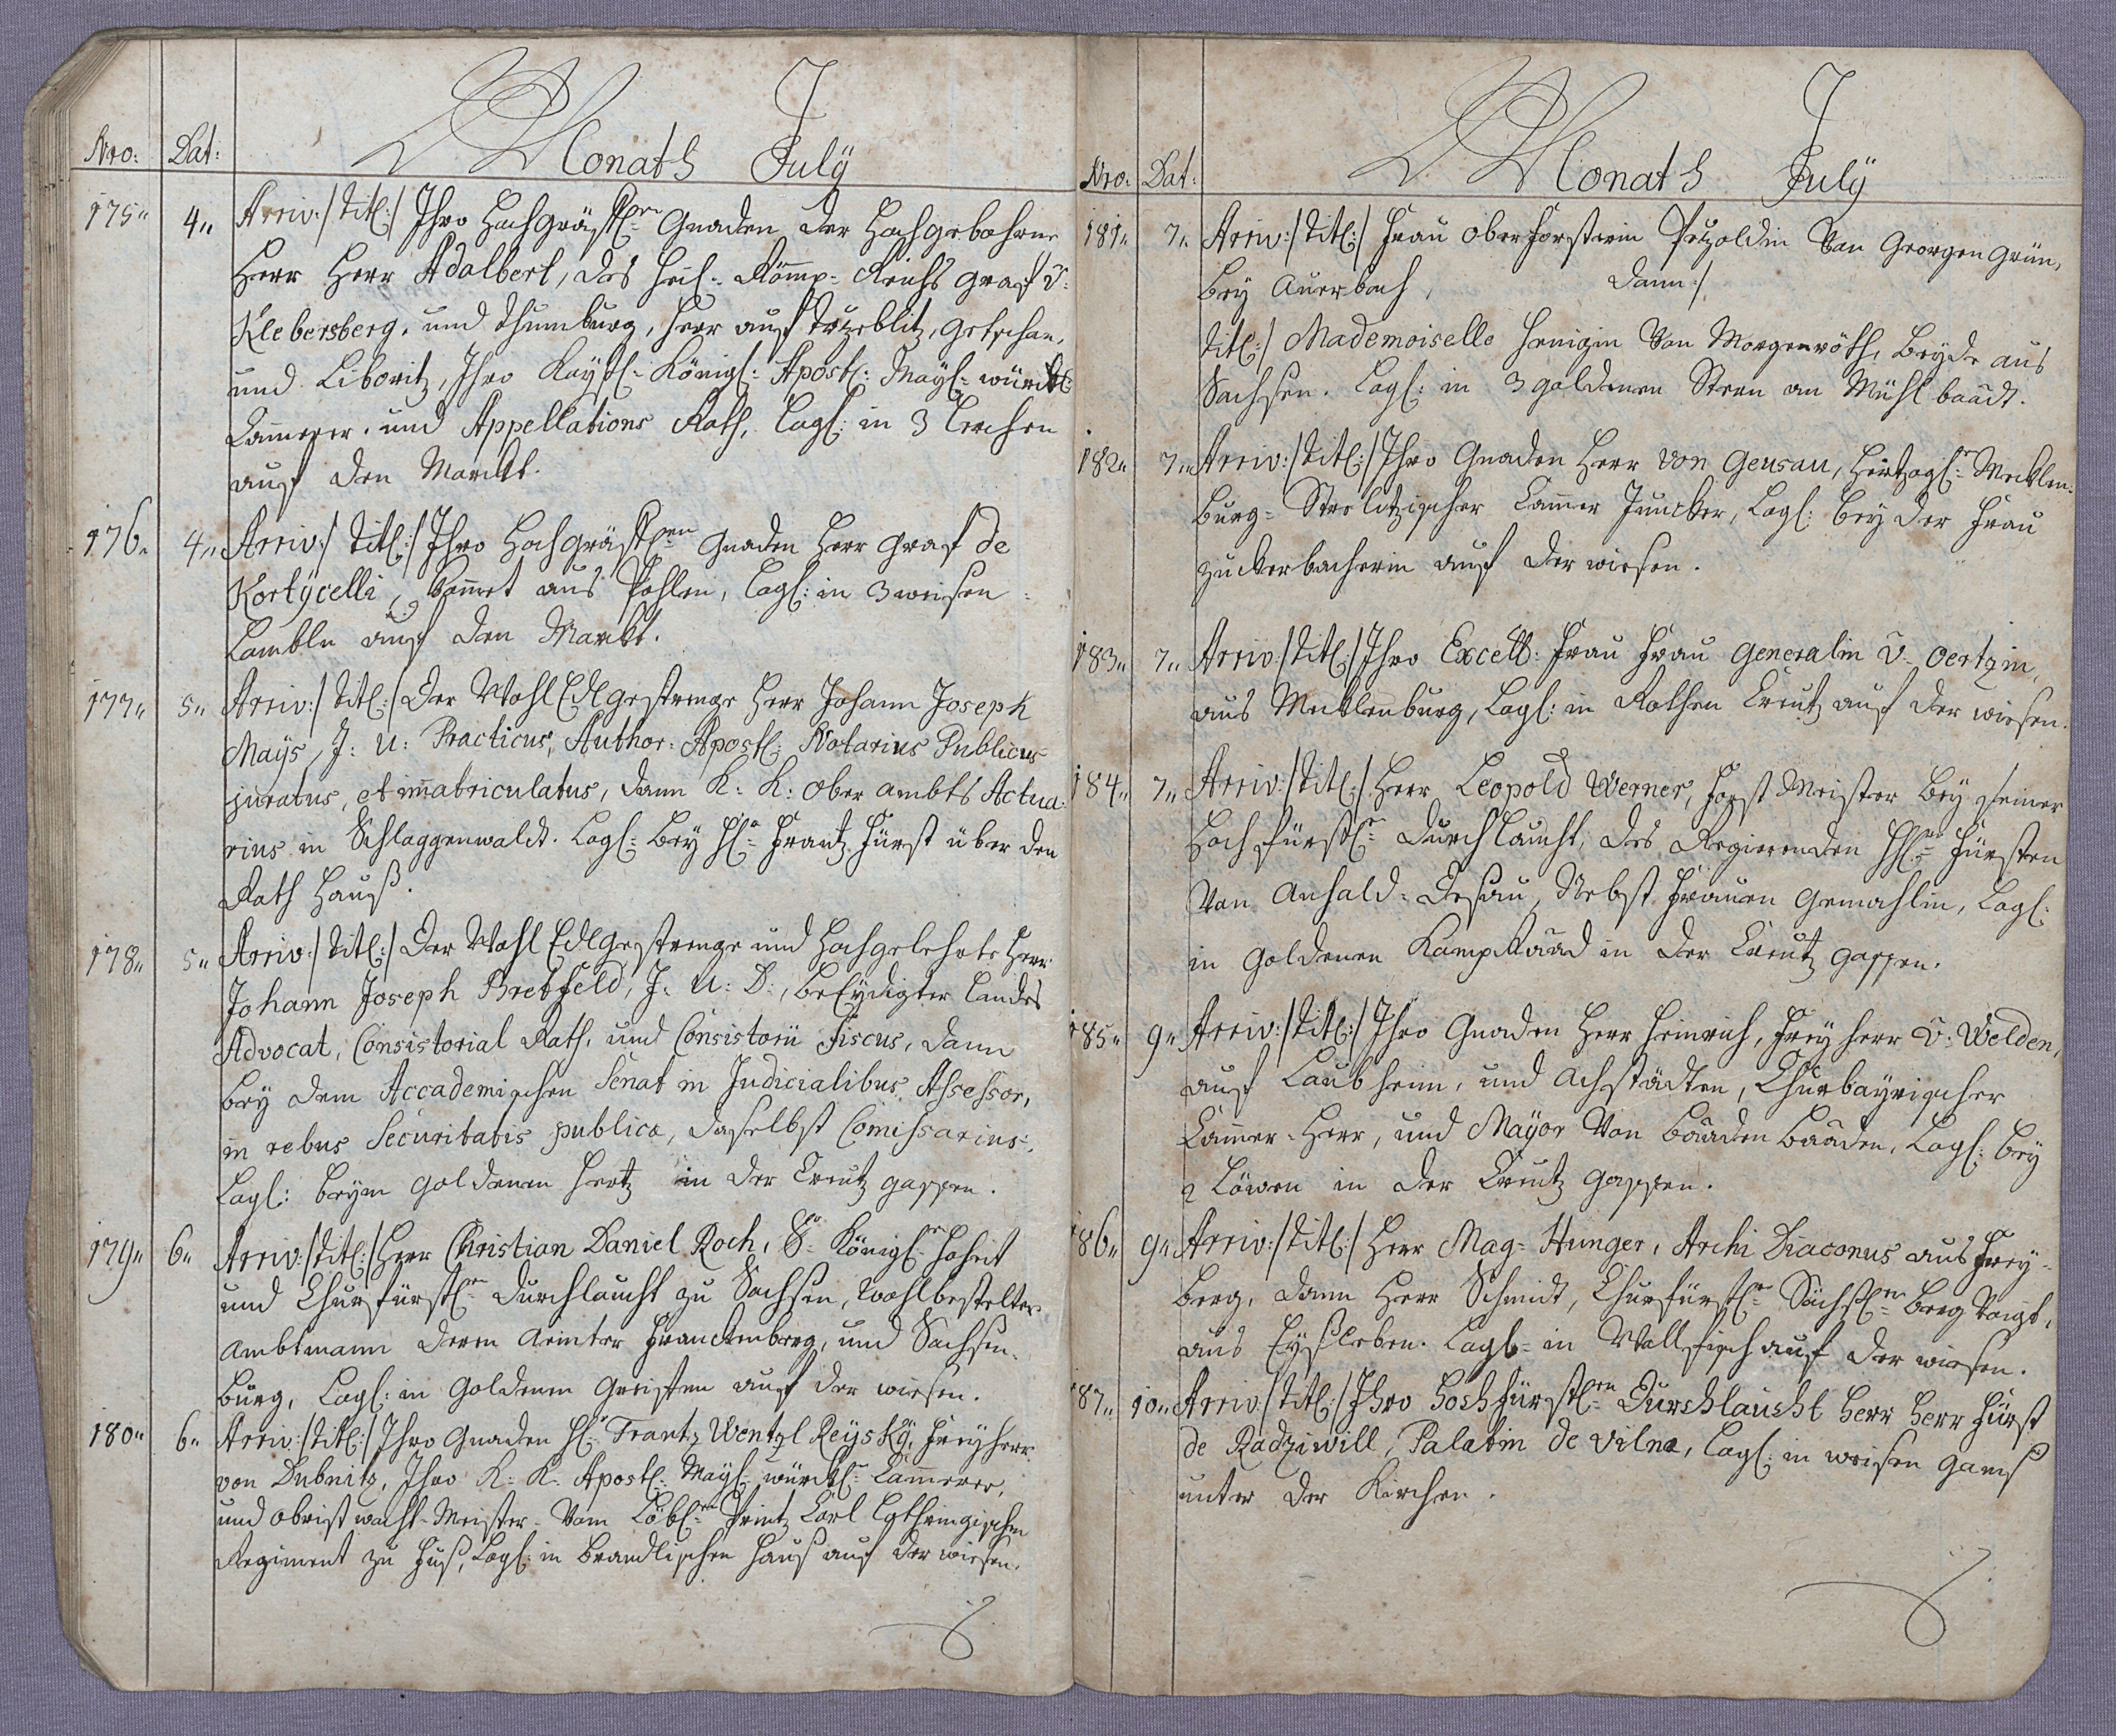 Nro: Dat: Monath July
175" 4" Arriv:/ titl:/ Ihro Hochgräffl:en Gnaden der Hochgebohrne
Herr Herr Adalbert, des heil: Römp: Reichs Graf v:
Klebersberg, und Thumburg, Herr auf Trzeblitz, Getschan,
und Liboritz, Ihro Kaysl: Königl: Apostl: Mayl: würckl:
Cam̄erer, und Appellations Rath, Logl: in 3 Lerchen
auf den Marckt.
176" 4" Arriv:/ titl:/ Ihro Hochgräffl:en Gnaden Herr Graf de
Kortycelli, kom̄et aus Pohlen, Logl: in 3 weisen
Lambln auf den Marckt.
177" 5" Arriv:/ titl:/ Der Wohl Edlgestrenge Herr Johann Joseph
Mays, J: U: Practicus, Author: Apostl: Notarius Publicus
juratus, et im̄atriculatus, dann K: K: Ober ambts Actua-
rius in Schlaggenwaldt. Logl: bey Hl: Frantz Fürst über den
Rath Hauß.
178" 5" Arriv:/ titl:/ Der Wohl Edlgestrenge und Hochgelehrte Herr
Johann Joseph Bretfeld, J: U: D:, beEydigter Landes
Advocat, Consistorial Rath, und Consistorii Fiscus, dann
bey dem Accademischen Senat in Judicialibus Assessor,
in rebus Securitatis publica, daselbst Com̄issarius.
Logl: beym goldenen Hertz in der Creutz gassen.
179" 6" Arriv:/ titl:/ Herr Christian Daniel Koch, Sr Königl:en Hoheit
und Churfürstl:en Durchlaucht zu Sachsen, Wohlbestelter
Ambtmann deren Aemter Franckenberg, und Sachsen-
burg, Logl: in goldenen Greissen auf der wiesen.
180" 6" Arriv:/ titl:/ Ihro Gnaden Hl: Frantz Wentzl Reysky, Freyherr
von Dubnitz, Ihro K: K: Apostl: Mayl: würckl: Cam̄erer,
und Obrist wacht-Meister Vom Löbl:en Printz Carl Lothringischen
Regiment zu Fuß, Logl: in Brandlischen Hauß auf der wiesen.
Nro: Dat: Monath July
181" 7" Arriv:/ titl:/ Frau Oberforsterin Petzoldin Von Georgen Grün,
bey Auerbach, dann:/
titl:/ Mademoiselle Henigin Von Morgenröth, beyde aus
Sachsen. Logl: in 3 goldenen Stern am Mühl baadt.
182" 7" Arriv:/ titl:/ Ihro Gnaden Herr von Geusau, Hertzogl:r Mecklen-
burg-Strelitzischer Cam̄er Juncker, Logl: bey der Frau
Zuckerbacherin auf der wiesen.
183" 7" Arriv:/ titl:/ Ihro Excell: Frau Frau Generalin v: Oertzin,
aus Mecklenburg, Logl: in Rothen Creutz auf der wiesen.
184" 7" Arriv:/ titl:/ Herr Leopold Werner, Forst Meister bey seiner
Hochfürstl:en Durchlaucht, des Regierenden Hl:en Fürsten
Von Anhald-Dessau, Nebst Frauen Gemahlin, Logl:
in goldenen Kamp Raad in der Creutz gassen.
185" 9" Arriv:/ titl:/ Ihro Gnaden Herr Heinrich, Freyherr v: Welden,
auf Laubheim, und Achstädten, Churbayrischer
Cam̄er-Herr, und Mayor Von Baaden Baaden, Logl: bey
2 Löwen in der Creutz gassen.
186" 9" Arriv:/ titl:/ Herr Mag: Hunger, Archi Diaconus aus Frey-
berg, dann Herr Schmidt, Churfürstl:en Sächsl:er Berg Voigt,
aus Eysleben. Logl: in Wallfisch auf der wiesen.
187" 10" Arriv:/ titl:/ Ihro Hochfürstl:en Durchlaucht Herr Herr Fürst
de Radziwill, Palatin de Vilna, Logl: in weisen Ganß
unter der Kirchen.